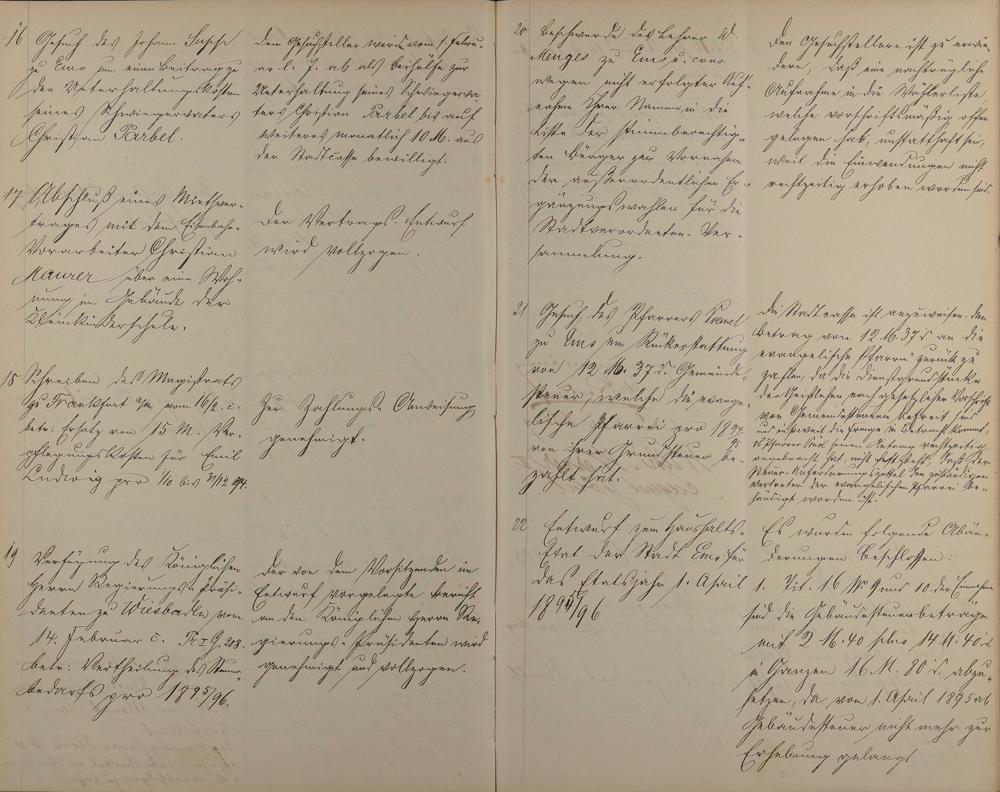 16 Gesuch des Johann
zu Ems um einen Beitrag zu
den Unterhaltungskosten
seines Schwiegervaters
Christian Karbel.
Dem Gesuchsteller wird vom 1. Febru-
ar l. J. ab als Beihülfe zur
Unterhaltung seines Schwiegerva-
ters Christian Karbel bis auf
Weiteres monatlich 10 M. aus
der Stadtcasse bewilligt.
17 Abschluß eines Miethver-
trages mit dem Eisenbahn-
Vorarbeiter Christian
Maurer über eine Woh-
nung im Gebäude der
Kleinkinderschule.
Der Vertrags-Entwurf
wird vollzogen.
18 Schreiben des Magistrats
zu Frankfurt a/M. vom 16/2. c.
betr: Ersatz von 15 M. Ver-
pflegungskosten für Emil
Ludwig pro 1/10 bis 31/12 94.
Zur Zahlungs-Anweisung
genehmigt.
19 Verfügung des Königlichen
Herrn Regierungs-Präsi-
denten zu Wiesbaden vom
14. Februar c. Pr I G. 208.
betr: Vertheilung des Steuer-
bedarfs pro 1895/96.
Der von dem Vorsitzenden im
Entwurf vorgelegte Bericht
an den Königlichen Herrn Re-
gierungs-Präsidenten wird
genehmigt und vollzogen.
20 Beschwerde des Lehrer W.
Menges zu Ems & cons.
wegen nicht erfolgter Auf-
nahme ihrer Namen in die
Liste der stimmberechtig-
ten Bürger zur Vornahme
der außerordentlichen Er-
gänzungswahlen für die
Stadtverordneten-Ver-
sammlung.
Den Gesuchstellern ist zu erwie-
dern, daß eine nachträgliche
Aufnahme in die Wählerliste
welche vorschriftsmäßig offen
gelegen hab, unstatthaft sei,
weil die Einwendungen nicht
rechtzeitig erhoben worden sind.
21 Gesuch des Pfarrers
zu Ems um Rückerstattung
von 12 M. 37 d. Gemeinde-
steuer, welche die evange-
lische Pfarrei pro 1894/95
von ihrer Grundsteuer be-
zahlt hat.
Die Stadtcasse ist anzuweisen den
Betrag von 12 M. 37 d an die
evangelische Pfarrei zurück zu
zahlen, da die Dienstgrundstücke
der Geistlichen nach gesetzlicher Vorschrift
von Gemeindesteuern befreit sind
und insoweit die Frage in Betracht kommt,
ob Pfarrer seinen Antrag rechtzeitig
angebracht hat, nicht feststeht, daß der
Steuer-Anforderungszettel dem zuständigen
Vertreter der evangelischen Pfarrei be-
händigt worden ist.
22 Entwurf zum Haushalts-
Etat der Stadt Ems für
das Etatsjahr 1. April
1895/96
Es wurden folgende Abän-
derungen beschlossen:
1. Tit. 16 № 9 und 10 der Einnahme
sind die Gebäudesteuerbeträge
mit 2 M. 40 plus 14 M. 40 d.
im Ganzen 16 M. 80 d. abzu-
setzen, da vom 1. April 1895 ab
Gebäudesteuer nicht mehr zur
Erhebung gelangt